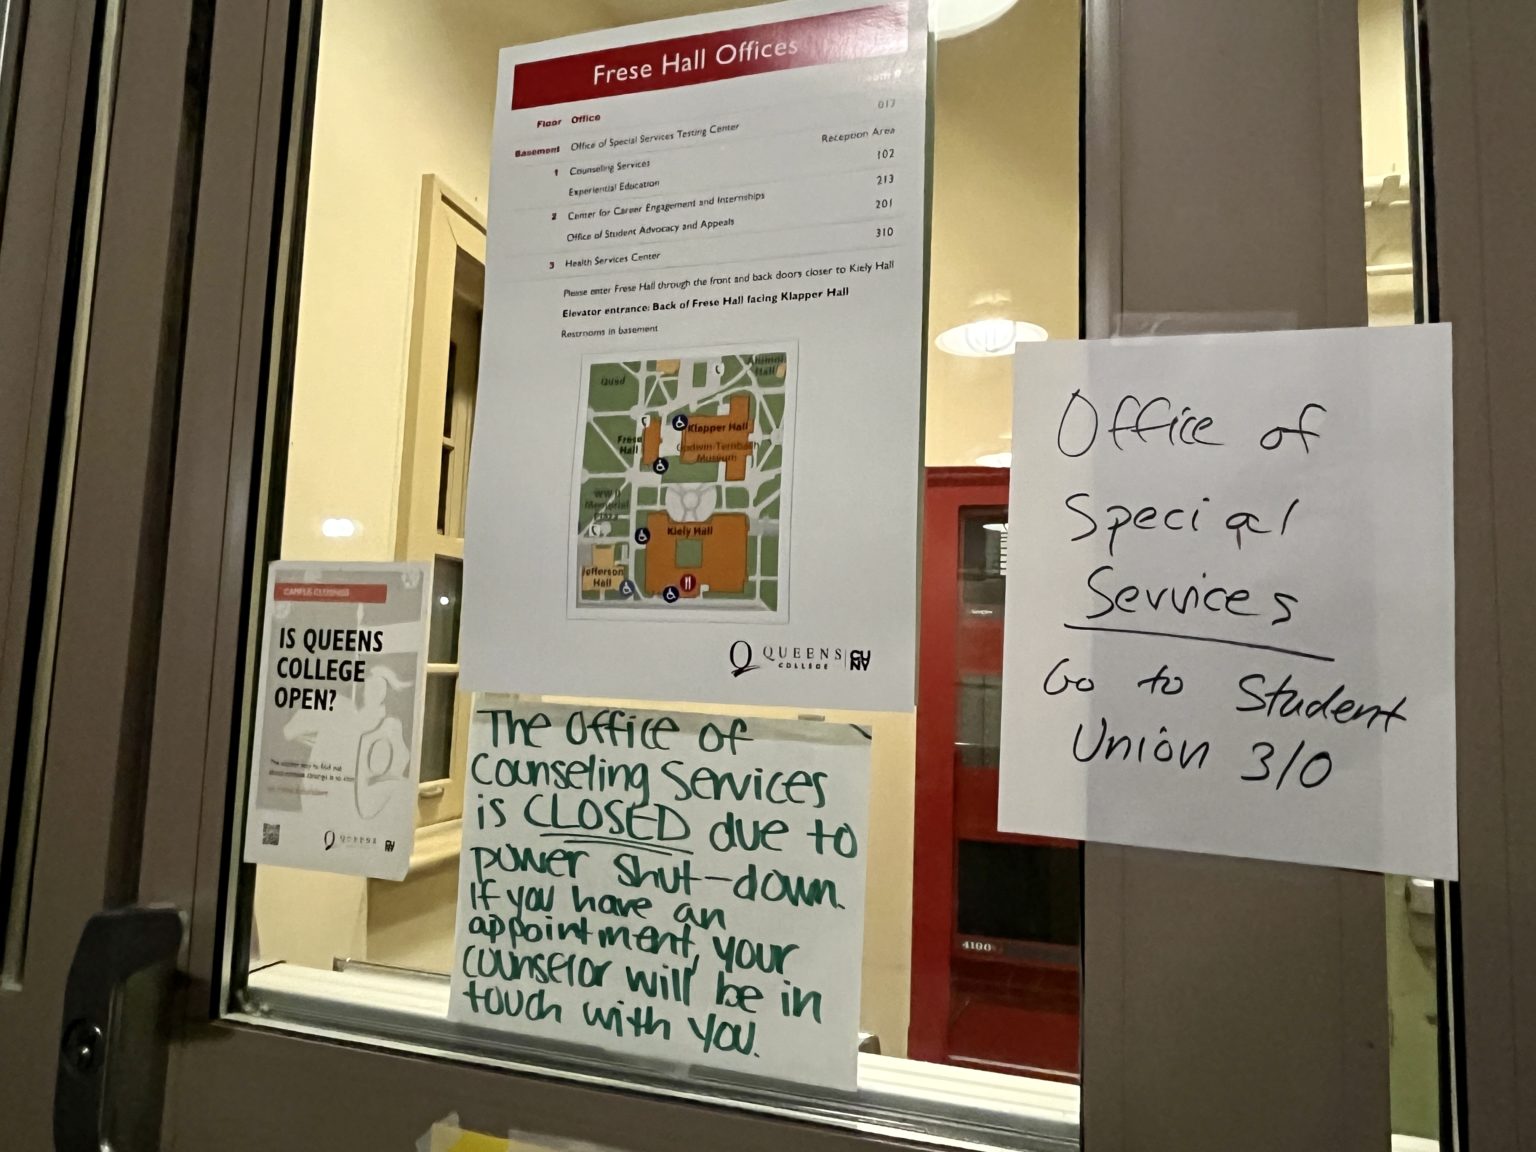 Frese Hall Offices
Floor Office
Basement Office of Special Services Testing Center 017
1 Counseling Services Reception Area
Experiential Education 102
2 Center for Career Engagement and Internships 213
Office of Student Advocacy and Appeals 201
3 Health Services Center 310
Please enter Frese Hall through the front and back doors closer to Kiely Hall
Elevator entrance: Back of Frese Hall facing Klapper Hall
Restrooms in basement
Quad
Alumni
Hall
Klapper Hall
Frese
Hall
Godwin-Ternbach
Museum
WWII
Memorial
Plaza
Kiely Hall
Jefferson
Hall
QUEENS
COLLEGE
CU
NY
CAMPUS CLOSINGS
IS QUEENS
COLLEGE
OPEN?
QUEENS
The Office of
Counseling Services
is CLOSED due to
power shut-down.
If you have an
appointment, your
counselor will be in
touch with you.
Office of
Special
Services
Go to Student
Union 310
4100